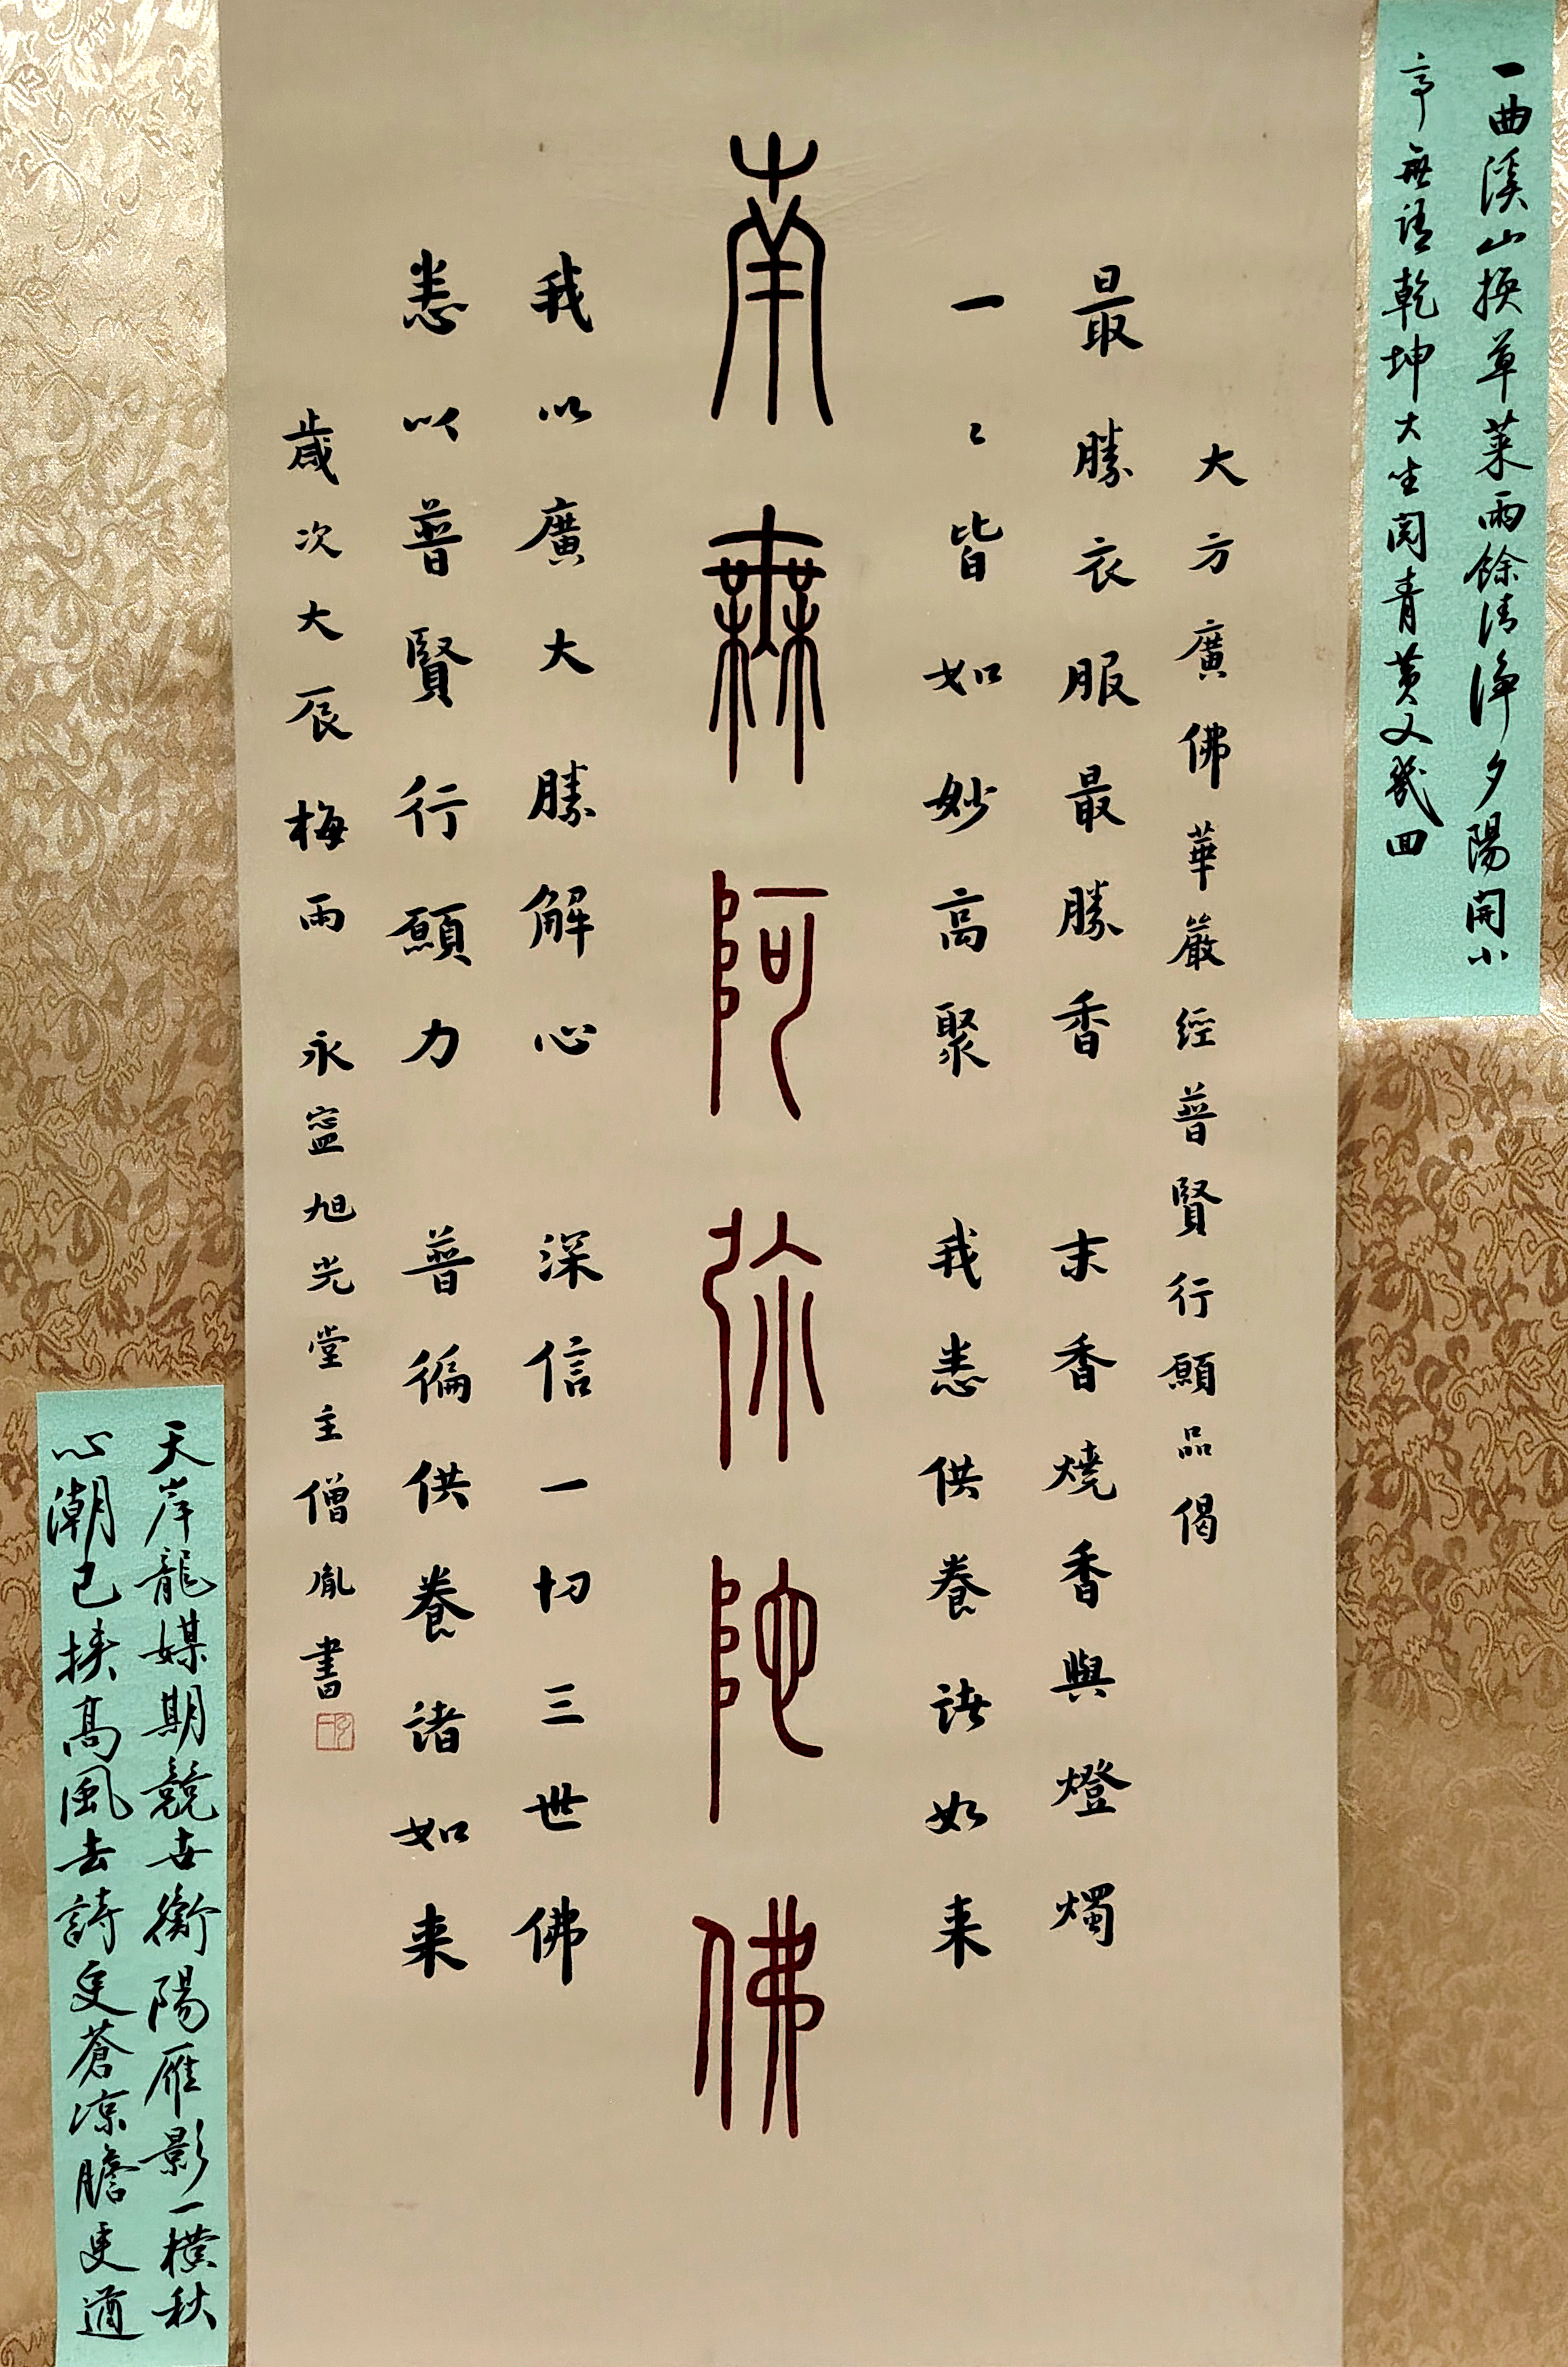 一曲溪山換草萊雨餘清淨夕陽開小
亭無語乾坤大坐閱青黃又幾回
大方廣佛華嚴經普賢行願品偈
最勝衣服最勝香 末香燒香與燈燭
一〻皆如妙高聚 我悉供養諸如来
南無阿弥陀佛
我以廣大勝解心 深信一切三世佛
悉以普賢行願力 普徧供養諸如来
歲次大辰梅雨 永寍旭光堂主僧胤書
天岸龍媒期競去衡陽雁影一橫秋
心潮已挾高風去詩更蒼涼膽更遒